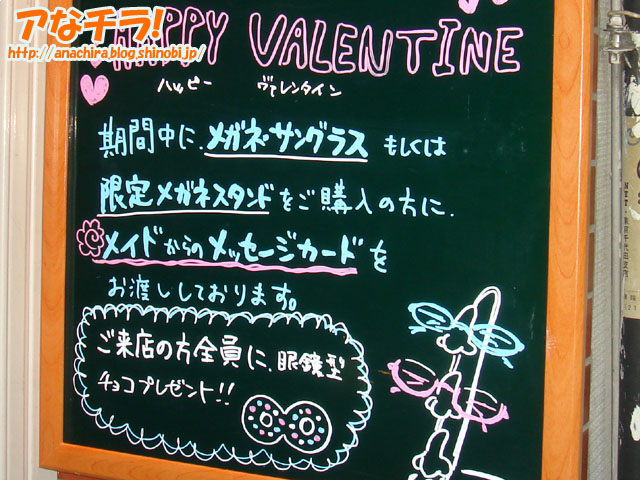 アなチラ!
http://anachira.blog.shinobi.jp/
HAPPY VALENTINE
ハッピー ヴァレンタイン
期間中に、メガネ・サングラス もしくは
限定メガネスタンドをご購入の方に、
メイドからのメッセージカードを
お渡ししております。
ご来店の方全員に、眼鏡型
チョコプレゼント!!